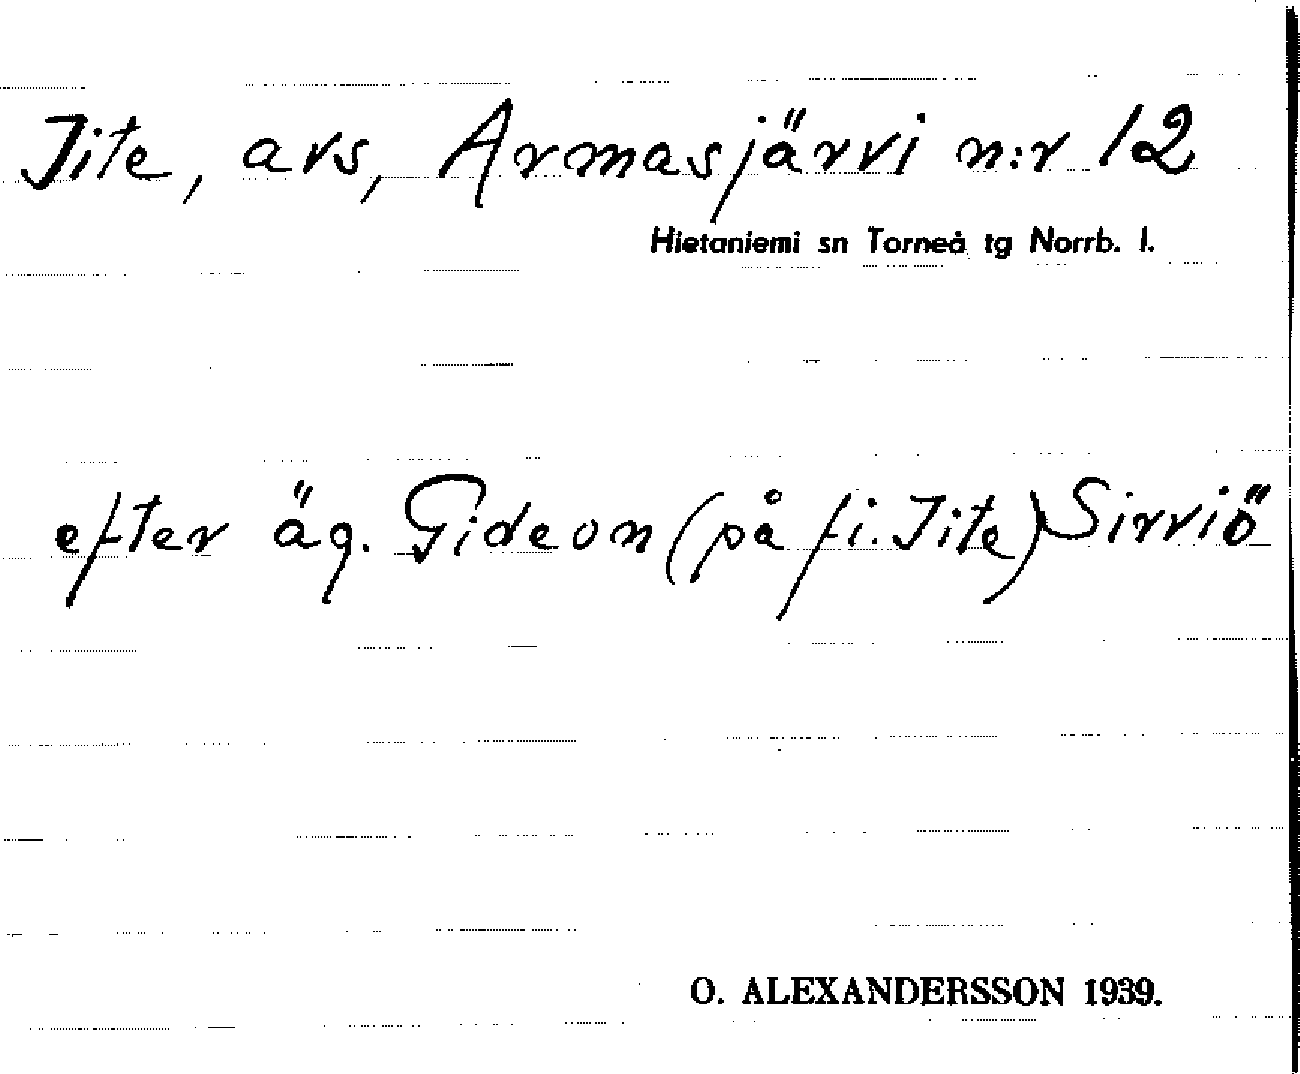 Jite, avs, Armasjärvi n:r 12
Hietaniemi sn Torneå tg Norrb. l.
efter äg. Gideon (på fi. Jite) Sirviö
O. ALEXANDERSSON 1939.